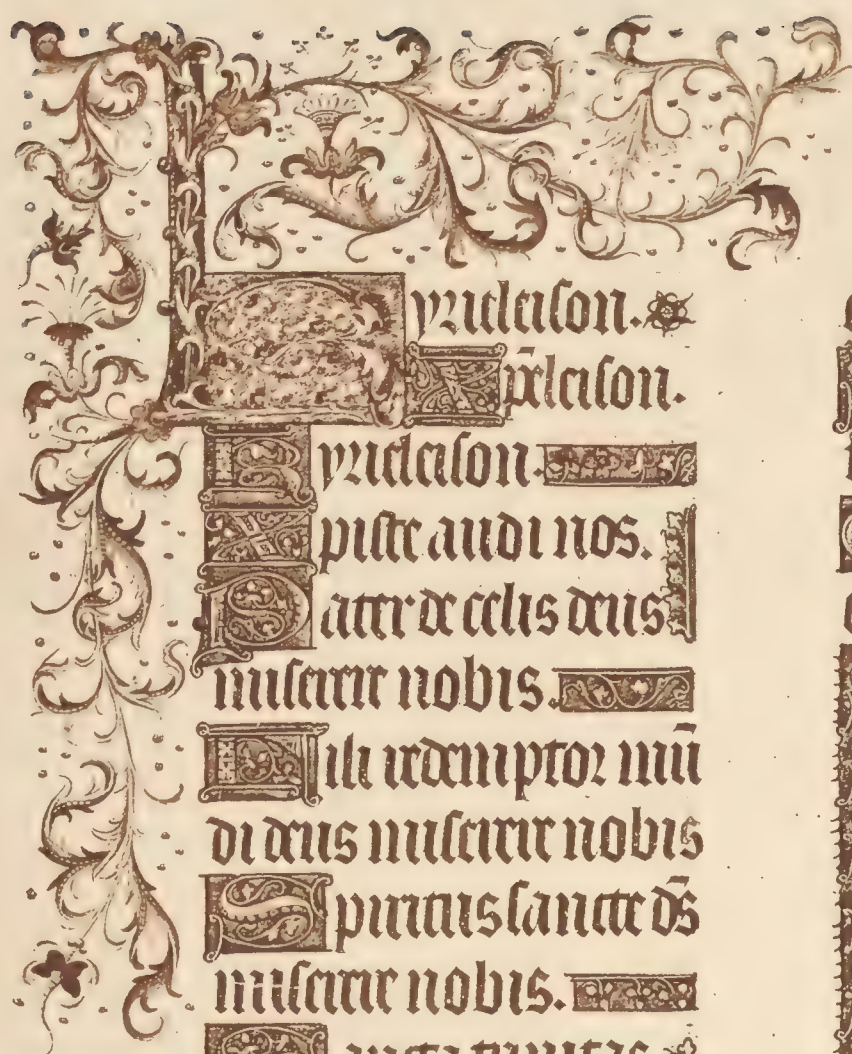 Kyrieleison.
Xp̄eleison.
Kyrieleison.
Xpiste audi nos.
Pater de celis deus
miserere nobis.
Fili redemptor mū
di deus miserere nobis
Spiritus sancte ds̄
miserere nobis.
Sancta trinitas